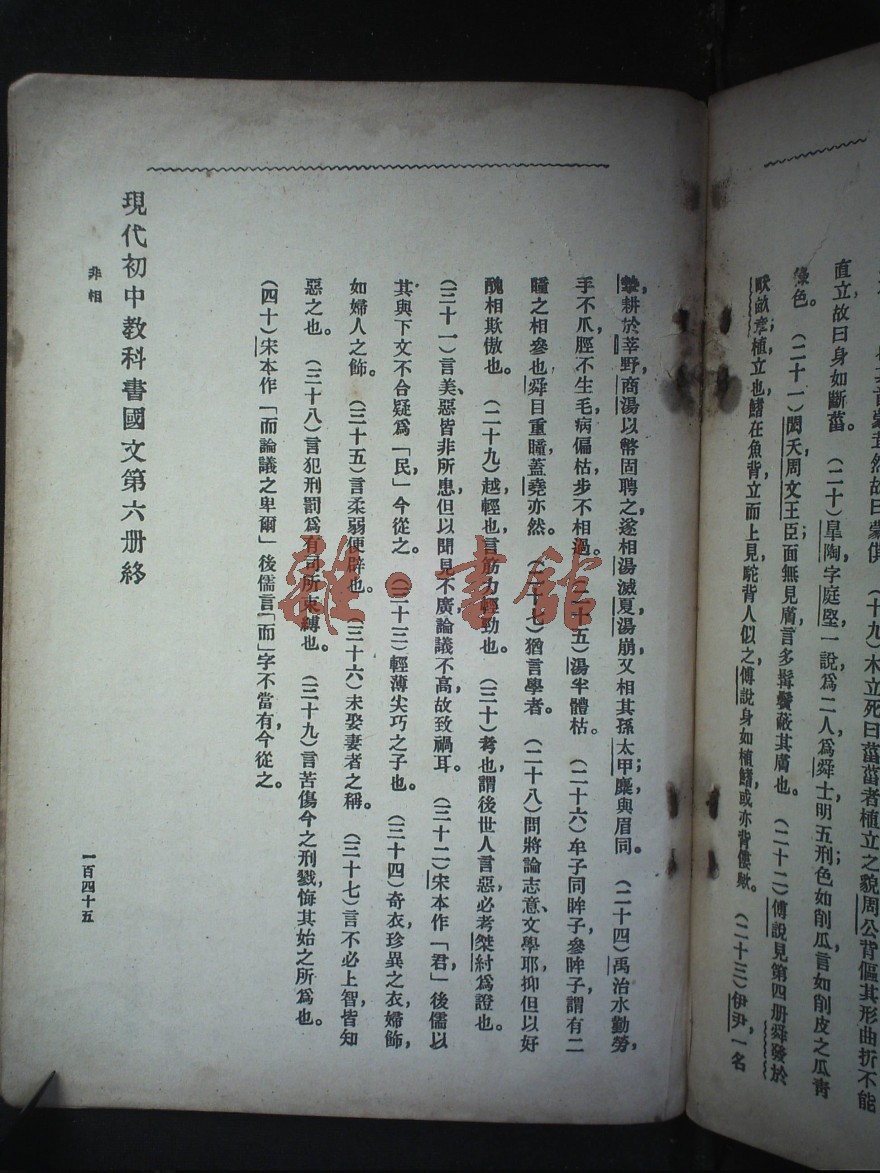 然故曰蒙倛。（十九）木立死曰菑菑者植立之貌周公背傴其形曲折不能
直立，故曰身如斷菑。（二十）臯陶，字庭堅，一說爲二人爲舜士明五刑色如削瓜言如削皮之瓜青
綠色。（二十一）閎夭，周文王臣；面無見膚，言多髯鬢蔽其膚也。（二十二）傅說見第四册舜發於
畎畝章；植，立也，鰭在魚背立而上見，駝背人似之，傅說身如植鰭，或亦背僂歟。（二十三）伊尹，一名
摯，耕於莘野，商湯以幣固聘之，遂相湯滅夏，湯崩，又相其孫太甲；麋與眉同。（二十四）禹治水勤勞，
手不爪，脛不生毛，病偏枯，步不相過。（二十五）湯半體枯。（二十六）牟子同眸子，參眸子，謂有二
瞳之相參也，舜目重瞳，蓋堯亦然。（二十七）猶言學者。（二十八）問將論志意、文學耶，抑但以好
醜相欺傲也。（二十九）越，輕也，言筋力輕勁也。（三十）考也，謂後世人言惡，必考桀紂爲證也。
（三十一）言美、惡皆非所患，但以聞見不廣，論議不高，故致禍耳。（三十二）宋本作「君」，後儒以
其與下文不合，疑爲「民」，今從之。（三十三）輕薄尖巧之子也。（三十四）奇衣，珍異之衣，婦飾，
如婦人之飾。（三十五）言柔弱便辟也。（三十六）未娶妻者之稱。（三十七）言不必上智，皆知
惡之也。（三十八）言犯刑罰爲有司所束縛也。（三十九）言苦傷今之刑戮，悔其始之所爲也。
（四十）宋本作「而論議之卑爾」，後儒言「而」字不當有，今從之。
現代初中教科書國文第六册終
非相
一百四十五
雜·書館